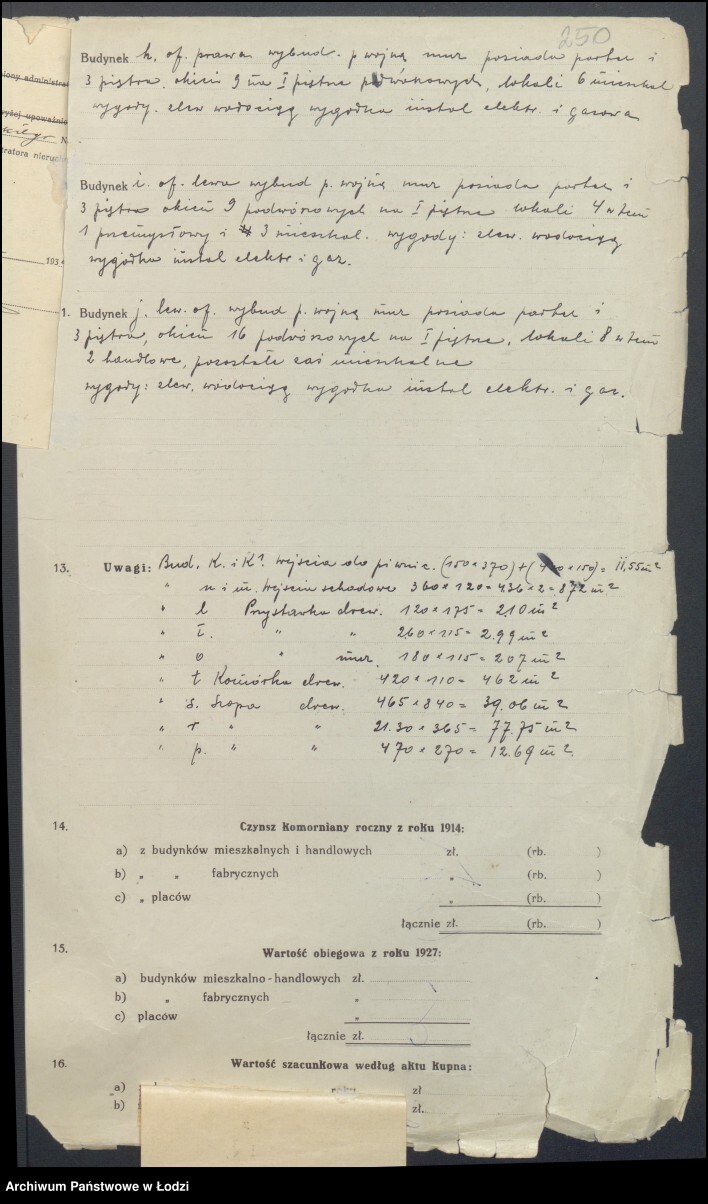 250
Budynek k. of. prawa wybud. p wojną mur posiada parter i
3 piętra. okien 9 na I piętrze podwórzowych, lokali 6 mieszkal
wygody. zlew wodociąg wygódka instal elektr. i gazowa
Budynek i. of. lewa wybud p. wojną mur posiada parter i
3 piętra okien 9 podwórzowych na I piętrze lokali 4 w tem
1 przemysłowy i 3 mieszkal. wygody: zlew. wodociąg
wygódka instal elektr i gaz.
1. Budynek j. lew. of. wybud p. wojną mur posiada parter i
3 piętra, okien 16 podwórzowych na I piętrze, lokali 8 w tem
2 handlowe, pozostałe zaś mieszkalne
wygody: zlew, wodociąg wygódka instal elektr. i gaz.
13. Uwagi: Bud. K. i K¹. Wejścia do piwnic. (150 x 370) + ( x 150) = 11,55 m²
" n i m. Wejścia schodowe 360 x 120 = 4.36 x 2 = 8,72 m²
" l Przystawka drew. 120 x 175 = 2.10 m²
" " " 260 x 115 = 2.99 m²
" o " mur. 180 x 115 = 207 m²
" t Komórka drew. 420 x 110 = 462 m²
" s. Szopa drew. 465 x 840 = 39.06 m²
" r " " 21.30 x 365 = 77.75 m²
" p. " " 470 x 270 = 12.69 m².
14. Czynsz komorniany roczny z roku 1914:
a) z budynków mieszkalnych i handlowych zł. (rb. )
b) " " fabrycznych " (rb. )
c) " placów " (rb. )
łącznie zł. (rb. )
15. Wartość obiegowa z roku 1927:
a) budynków mieszkalno-handlowych zł.
b) " fabrycznych "
c) placów "
łącznie zł.
16. Wartość szacunkowa według aktu kupna:
a) zł
b) zł.
Archiwum Państwowe w Łodzi